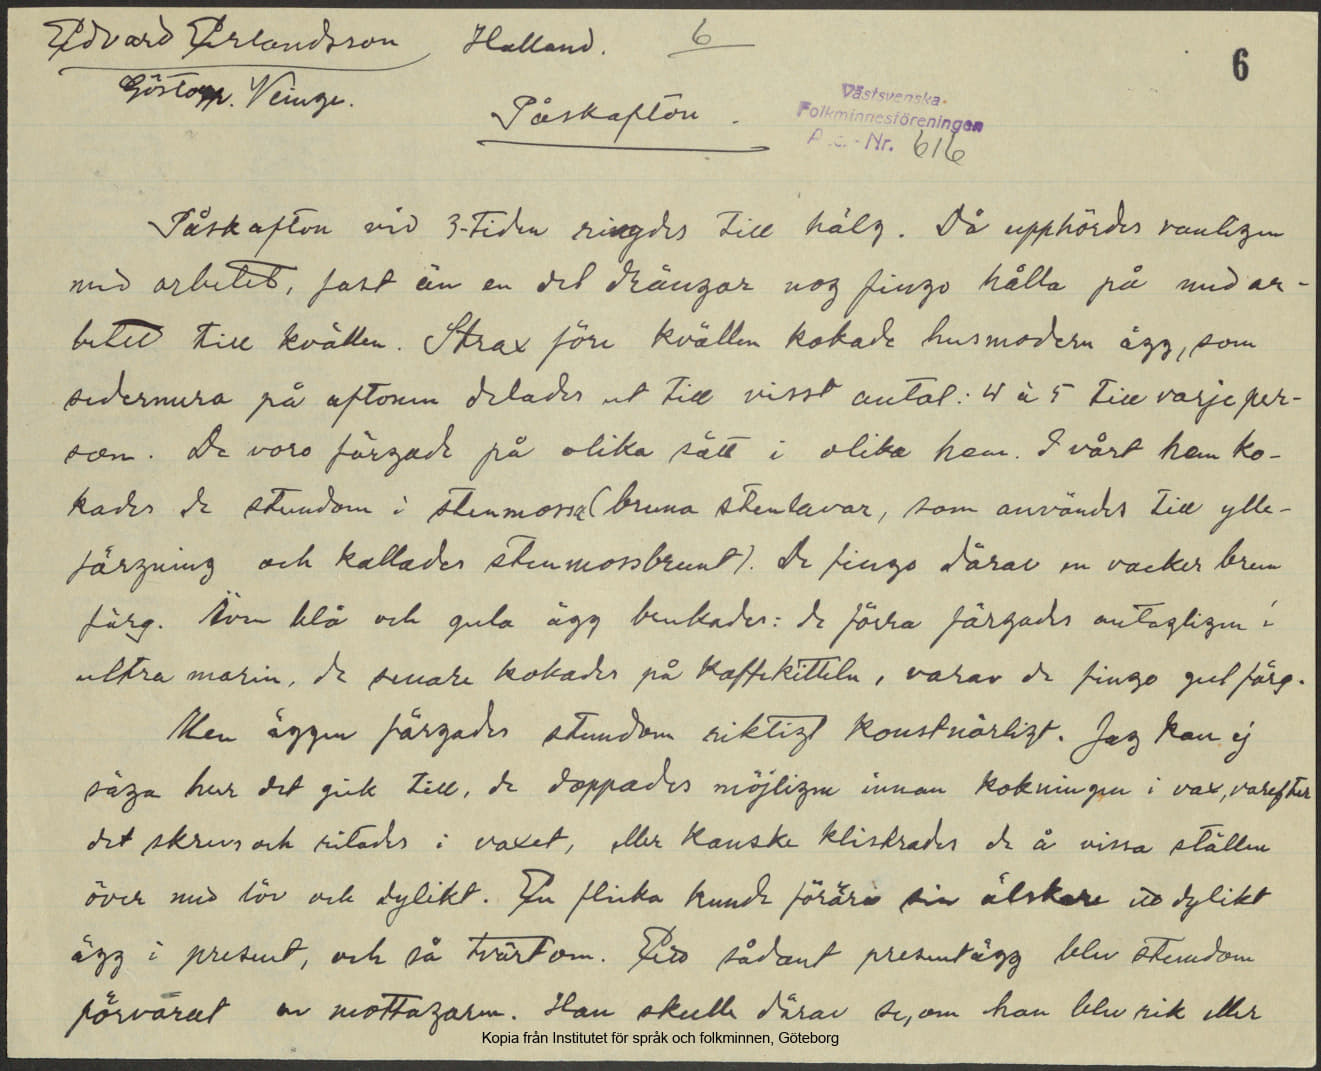 Edvard Erlandsson Halland. 6
6
Göstorp. Veinge.
Påskafton.
Västsvenska
Folkminnesföreningen
Acc. Nr. 616
Påskafton vid 3-tiden ringdes till hälg. Då upphördes vanligen
med arbetet, fast än en del drängar nog fingo hålla på med ar-
betet till kvällen. Strax före kvällen kokade husmodern ägg, som
sedermera på aftonen delades ut till visst antal: 4 à 5 till varje per-
son. De voro färgade på olika sätt i olika hem. I vårt hem ko-
kades de stundom i stenmossa (bruna stenlavar, som användes till ylle-
färgning och kallades stenmossbrunt). De fingo därav en vacker brun
färg. Även blå och gula ägg brukades: de förra färgades antagligen i
ultra marin, de senare kokades på kaffekitteln, varav de fingo gul färg.
Men äggen färgades stundom riktigt konstnärligt. Jag kan ej
säga hur det gick till, de doppades möjligen innan kokningen i vax, varefter
det skrevs och ritades i vaxet, eller kanske klistrades de å vissa ställen
över med löv och dylikt. En flicka kunde förära sin älskare ett dylikt
ägg i present, och så tvärtom. Ett sådant presentägg blev stundom
förvarat av mottagaren. Han skulle därav se, om han blev rik eller
Kopia från Institutet för språk och folkminnen, Göteborg